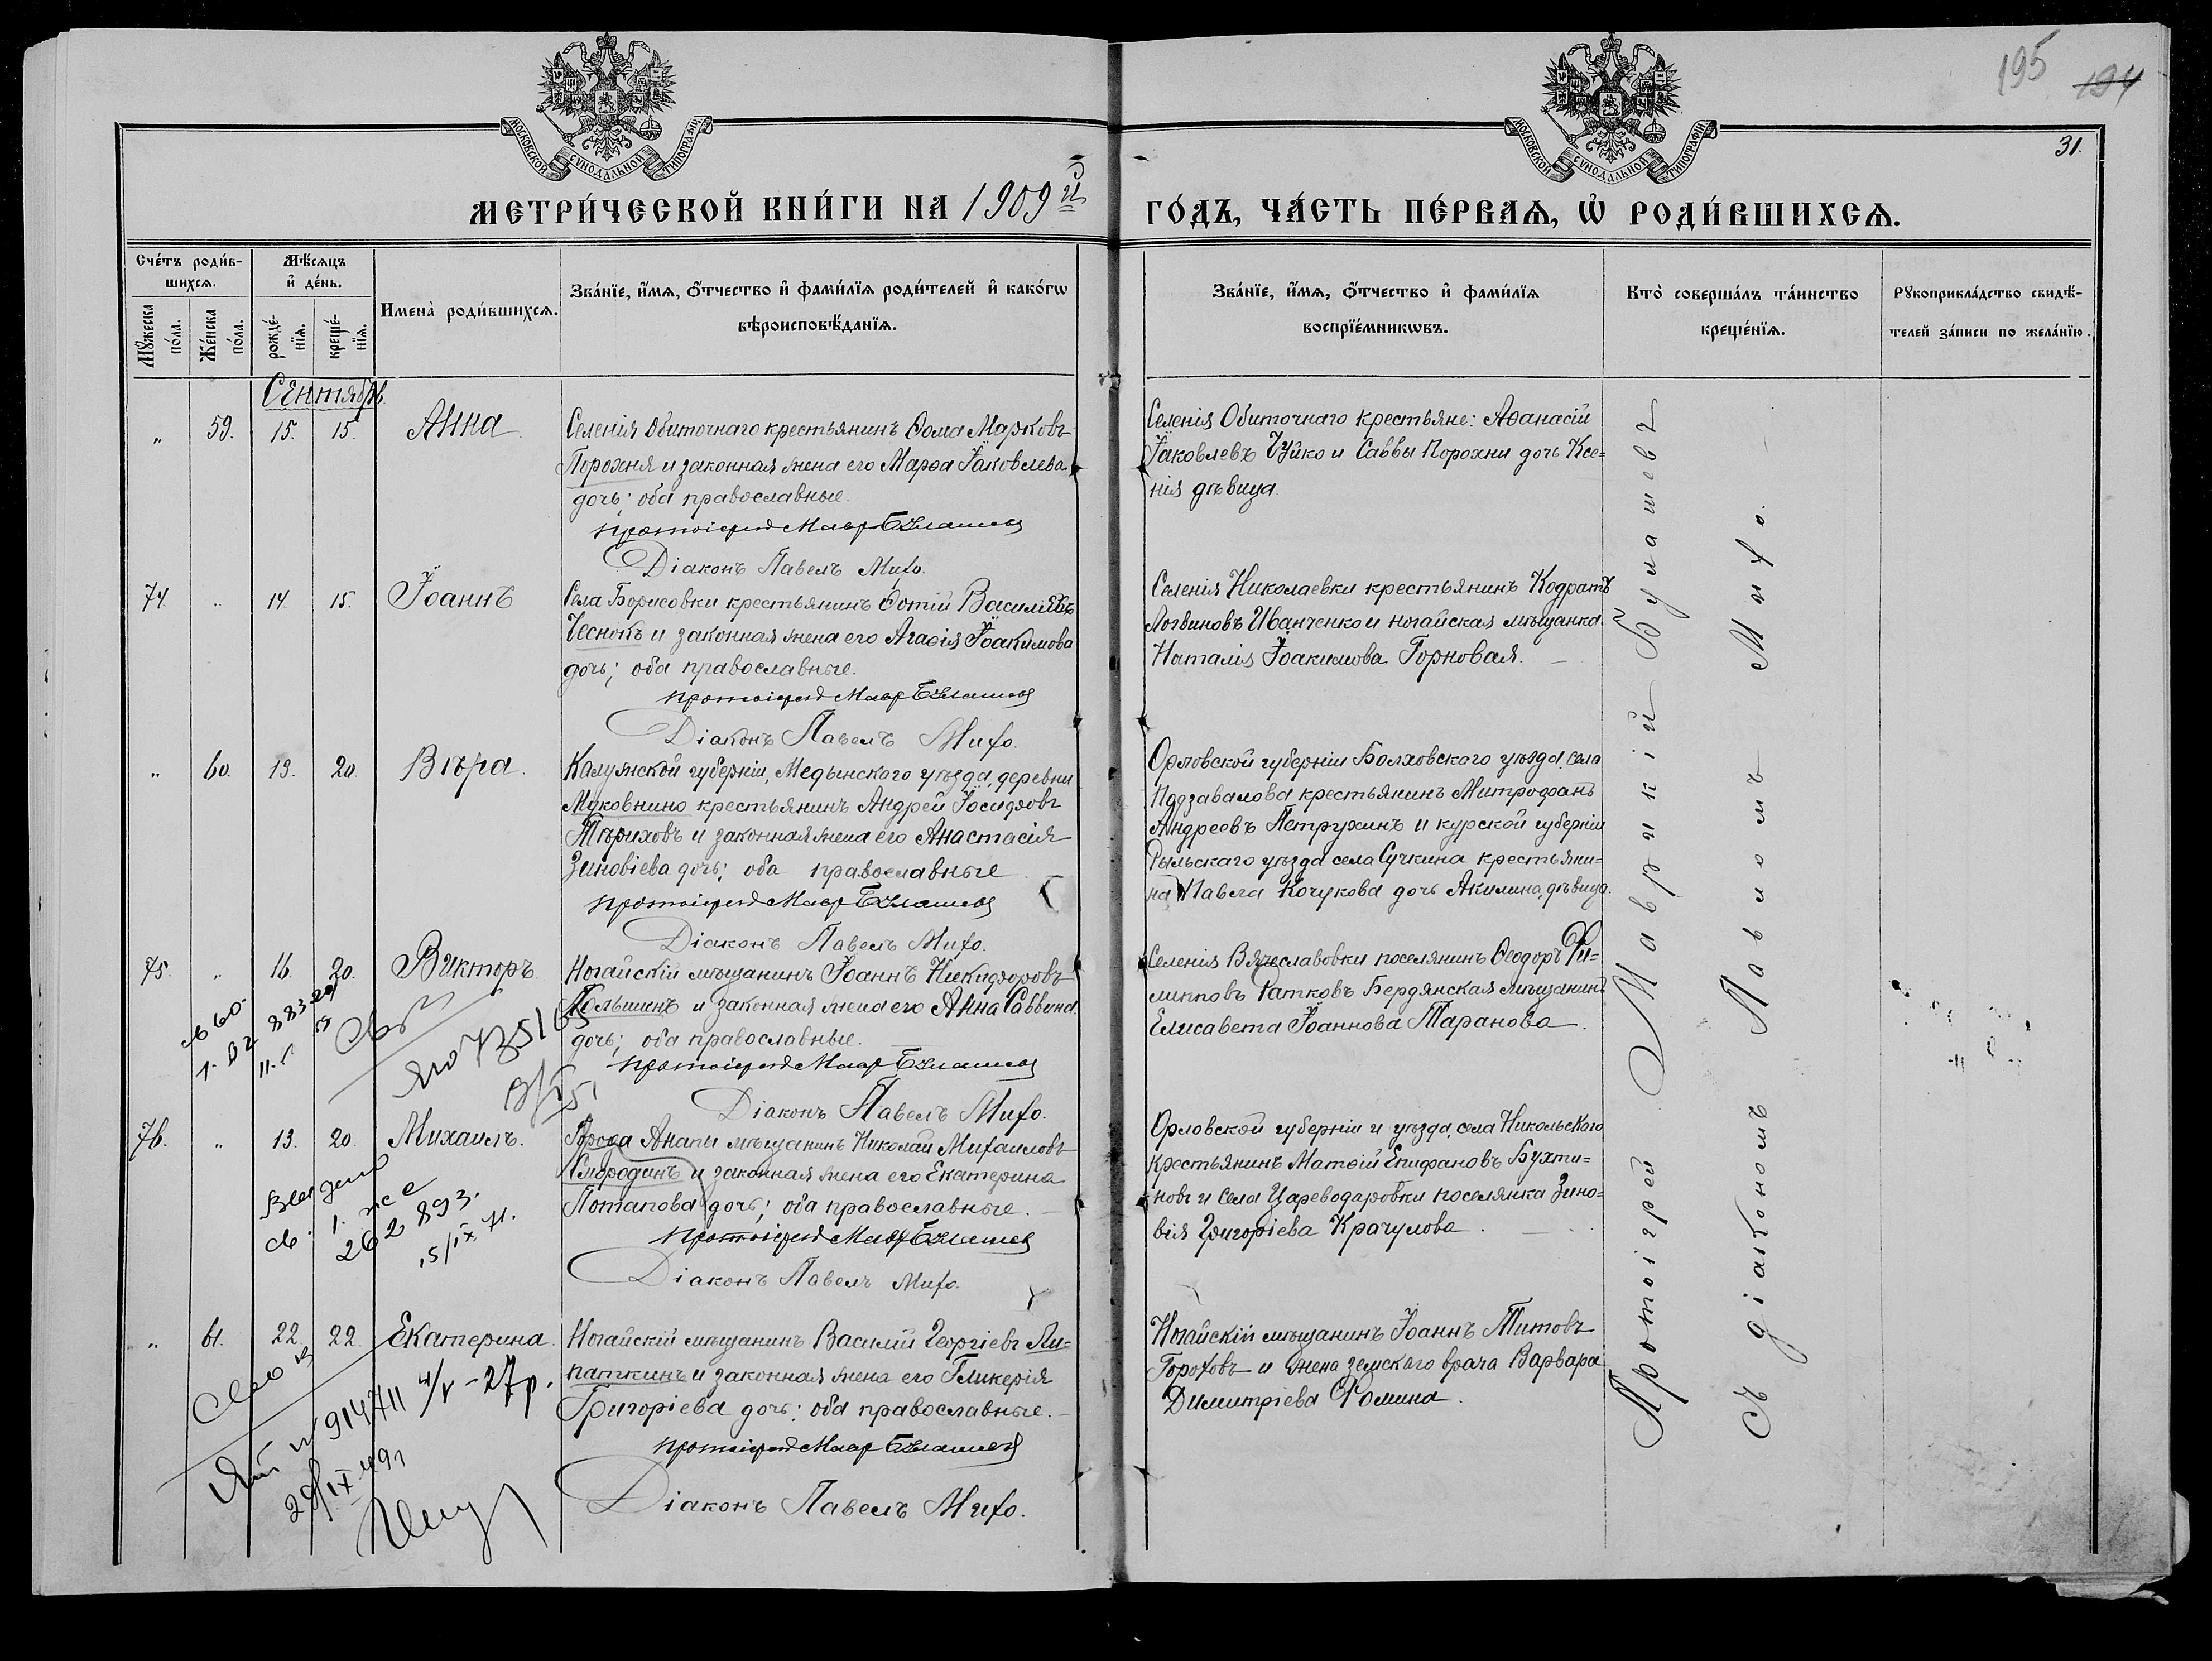 195 194
31.
МОСКОВСКОЙ СѴНОДАЛЬНОЙ ТИПОГРАФІИ
МОСКОВСКОЙ СѴНОДАЛЬНОЙ ТИПОГРАФІИ
МЕТРИ́ЧЕСКОЙ КНИ́ГИ НА 1909й ГО́ДЪ, ЧА́СТЬ ПЕ́РВАѦ, Ѡ҆ РОДИ́ВШИХСѦ.
Сче́тъ роди́в-
шихсѧ.
Мѣ́сѧцъ
и҆ де́нь.
Мꙋ́жеска
по́ла.
Же́нска
по́ла.
рожде́-
нїѧ.
креще́-
нїѧ.
Имена̀ роди́вшихсѧ.
Зва́нїе, и҆́мѧ, ѻ҆́тчество и҆ фами́лїѧ роди́телей и҆ како́гѡ
вѣроисповѣ́данїѧ.
Зва́нїе, и҆́мѧ, ѻ҆́тчество и҆ фами́лїѧ
воспрїе́мникѡвъ.
Кто̀ соверша́лъ та́инство
креще́нїѧ.
Рꙋкоприкла́дство свидѣ́-
телей за́писи по жела́нїю.
Сентябрь.
„ 59. 15. 15. Анна
Селенія Обиточнаго крестьянинъ Ѳома Марковъ
Порохня и законная жена его Марѳа Іаковлева
дочь; оба православные.
Протоіерей Мавр Булашев
Діаконъ Павелъ Михо.
Селенія Обиточнаго крестьяне: Аѳанасій
Іаковлевъ Чуйко и Саввы Порохни дочь Ксе=
нія дѣвица.
74. „ 14. 15. Іоаннъ
Села Борисовки крестьянинъ Фотій Василіевъ
Чеснокъ и законная жена его Агаѳія Іоакимова
дочь; оба православные.
Протоіерей Мавр Булашев
Діаконъ Павелъ Михо.
Селенія Николаевки крестьянинъ Кодратъ
Логвиновъ Иванченко и ногайская мѣщанка
Наталія Іоакимова Горновая.
„ 60. 13. 20. Вѣра.
Калужской губерніи, Медынскаго уѣзда, деревни
Муковнино крестьянинъ Андрей Іосифовъ
Тѣриховъ и законная жена его Анастасія
Зиновіева дочь; оба православные
Протоіерей Мавр Булашев
Діаконъ Павелъ Михо.
Орловской губерніи Болховскаго уѣзда, села
Подзавалова крестьянинъ Митрофанъ
Андреевъ Петрухинъ и курской губерніи
Рыльскаго уѣзда села Сучкина крестьяни=
на Павла Кочукова дочь Акилина, дѣвица.
75. „ 16. 20. Викторъ
Ногайскій мѣщанинъ Іоаннъ Никифоровъ
Польшинъ и законная жена его Анна Саввина
дочь; оба православные.
Протоіерей Мавр Булашев
Діаконъ Павелъ Михо.
Селенія Вячеславовки поселянинъ Ѳеодоръ Фи=
липповъ Ратковъ Бердянская мѣщанинъ
Елисавета Іоаннова Таранова.
76. „ 13. 20. Михаилъ.
Города Анапы мѣщанинъ Николай Михаиловъ
Смородинъ и законная жена его Екатерина
Потапова дочь; оба православные.
Протоіерей Мавр Булашев
Діаконъ Павелъ Михо.
Орловской губерніи и уѣзда, села Никольскаго
крестьянинъ Матѳій Епифановъ Бухти=
новъ и села Цареводаровки поселянка Зино=
вія Григоріева Крачулова.
262893.
15/IX 71.
„ 61. 22. 22. Екатерина.
Ногайскій мѣщанинъ Василій Георгіевъ Ли=
паткинъ и законная жена его Гликерія
Григоріева дочь; оба православные.
Протоіерей Мавр Булашев
Діаконъ Павелъ Михо.
Ногайскій мѣщанинъ Іоаннъ Титовъ
Гороховъ и жена земскаго врача Варвара
Димитріева Фомина.
914711
27р.
Протоіерей Маврикій Булашевъ
съ діакономъ Павломъ Михо.